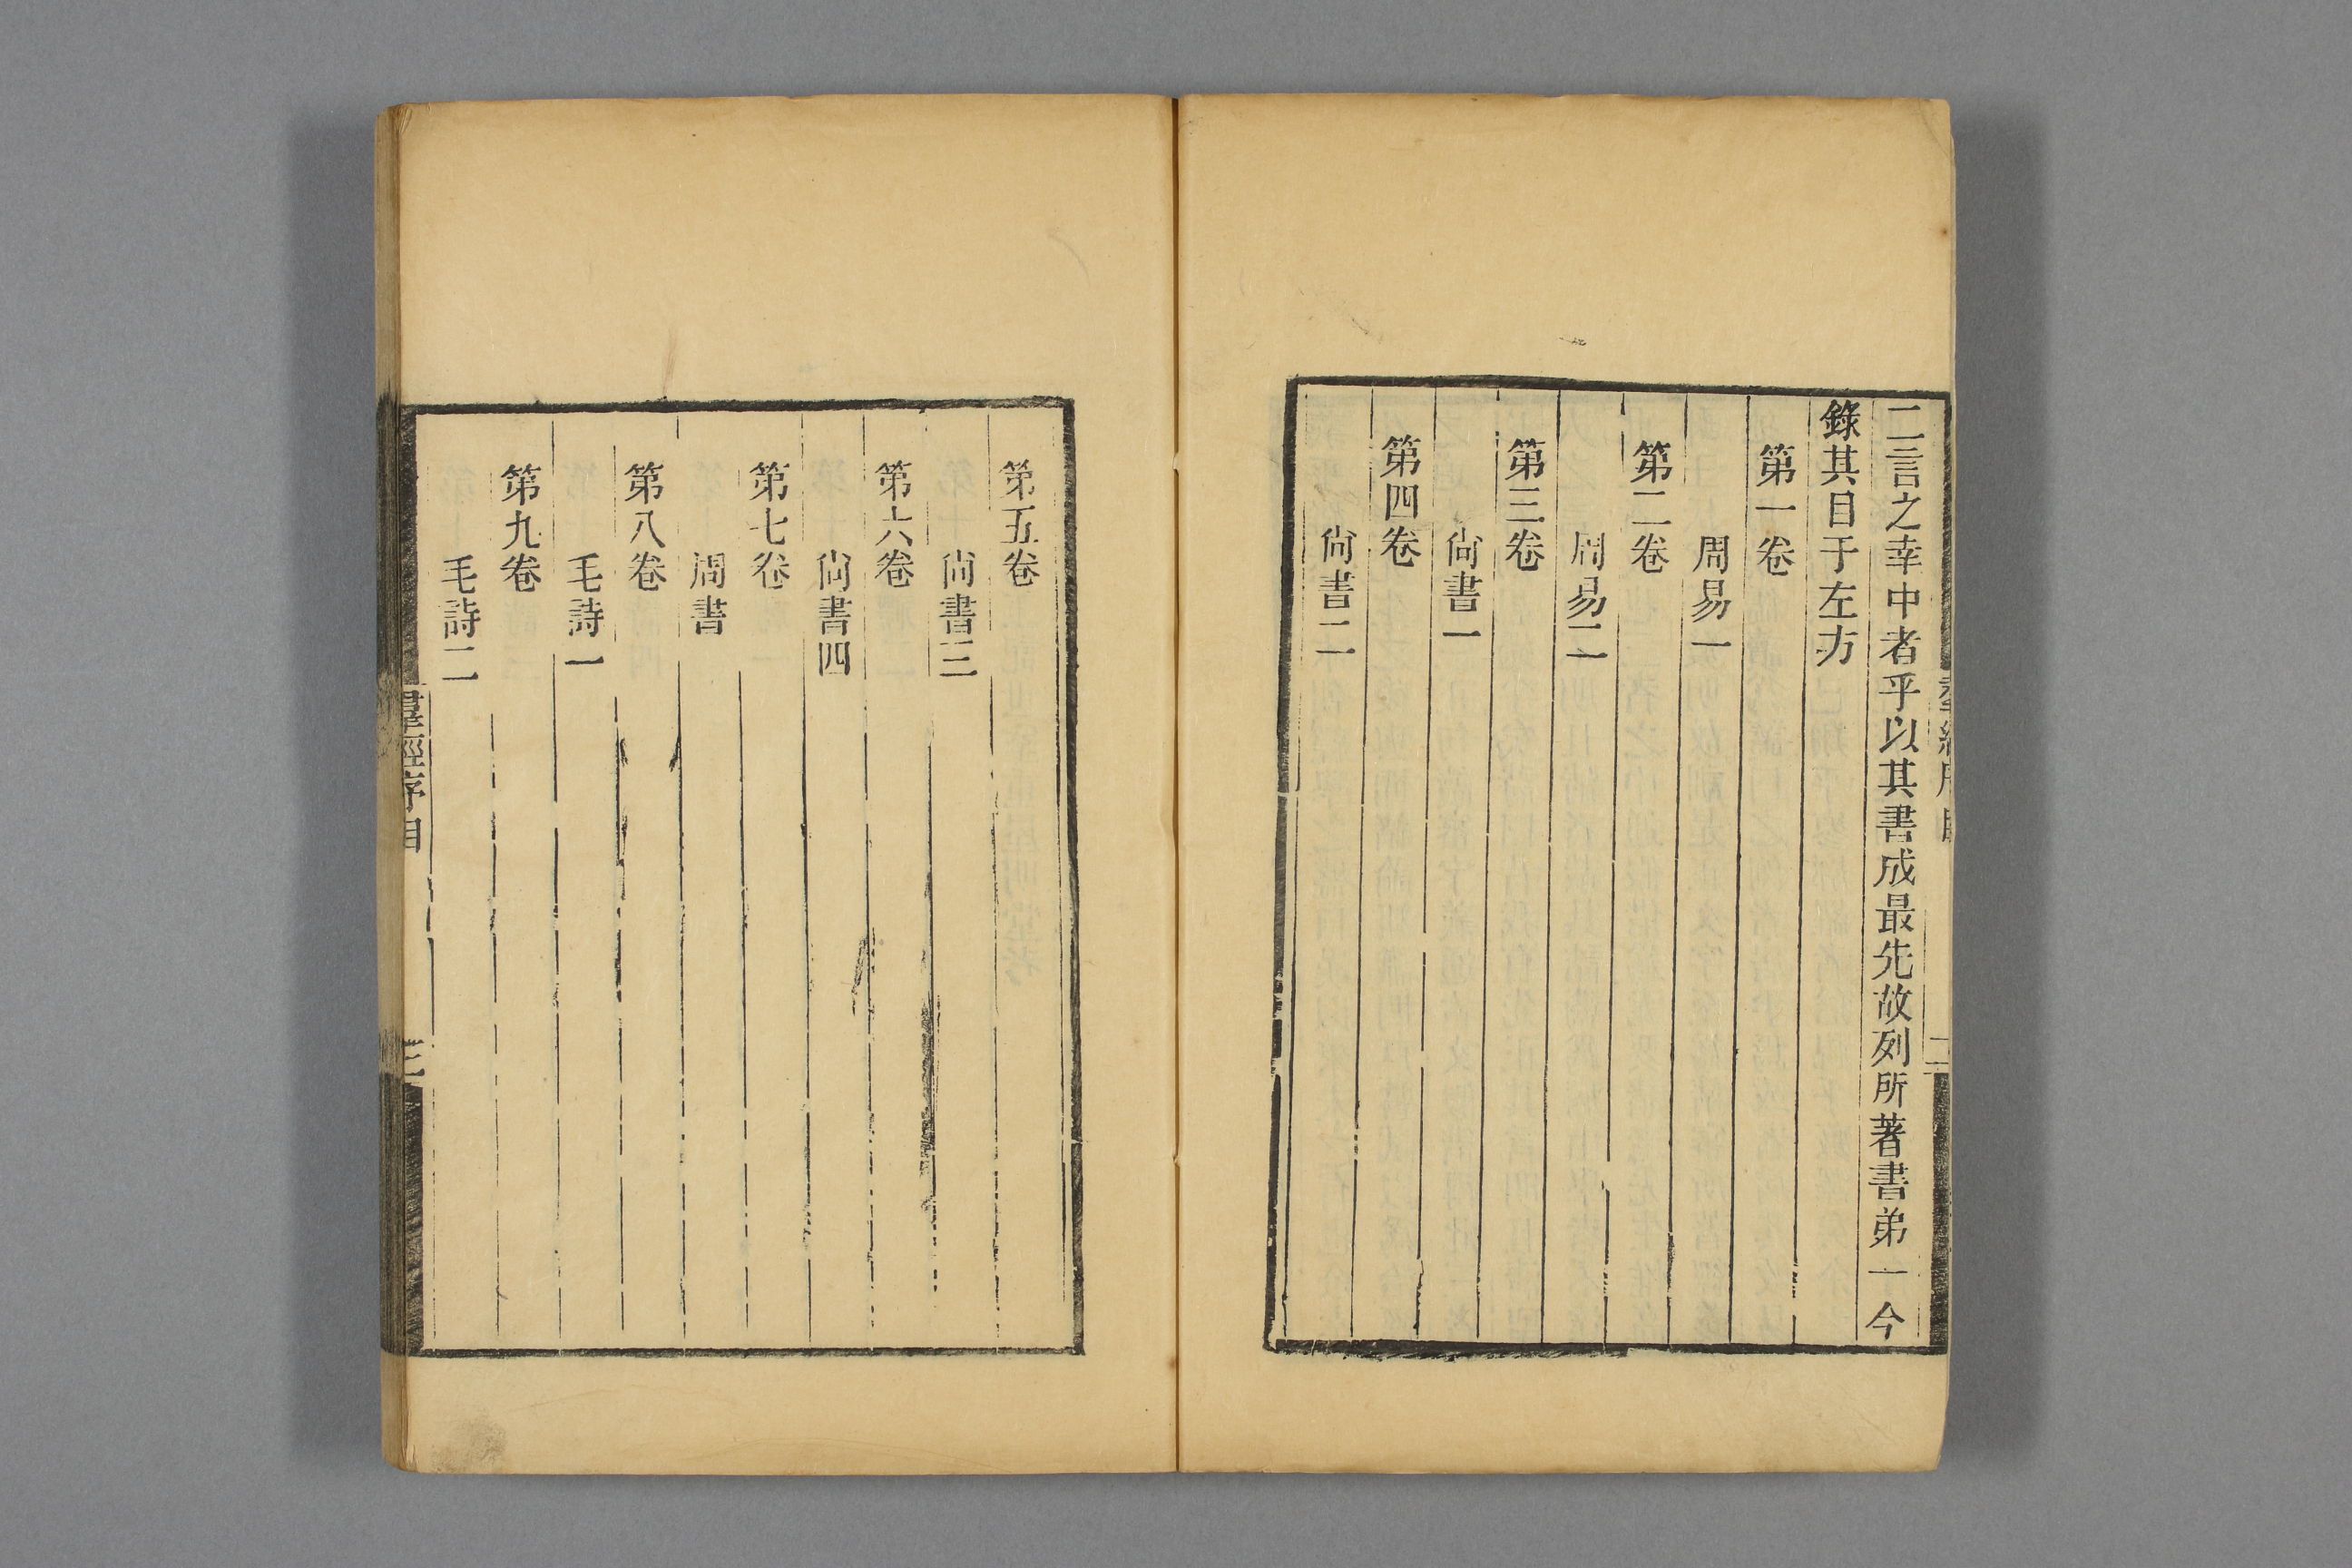 二言之幸中者乎以其書成最先故列所著書弟一今
錄其目于左方
第一卷
周易一
第二卷
周易二
第三卷
尙書一
第四卷
尙書二
第五卷
尙書三
第六卷
尙書四
第七卷
周書
第八卷
毛詩一
第九卷
毛詩二
羣經序目
三